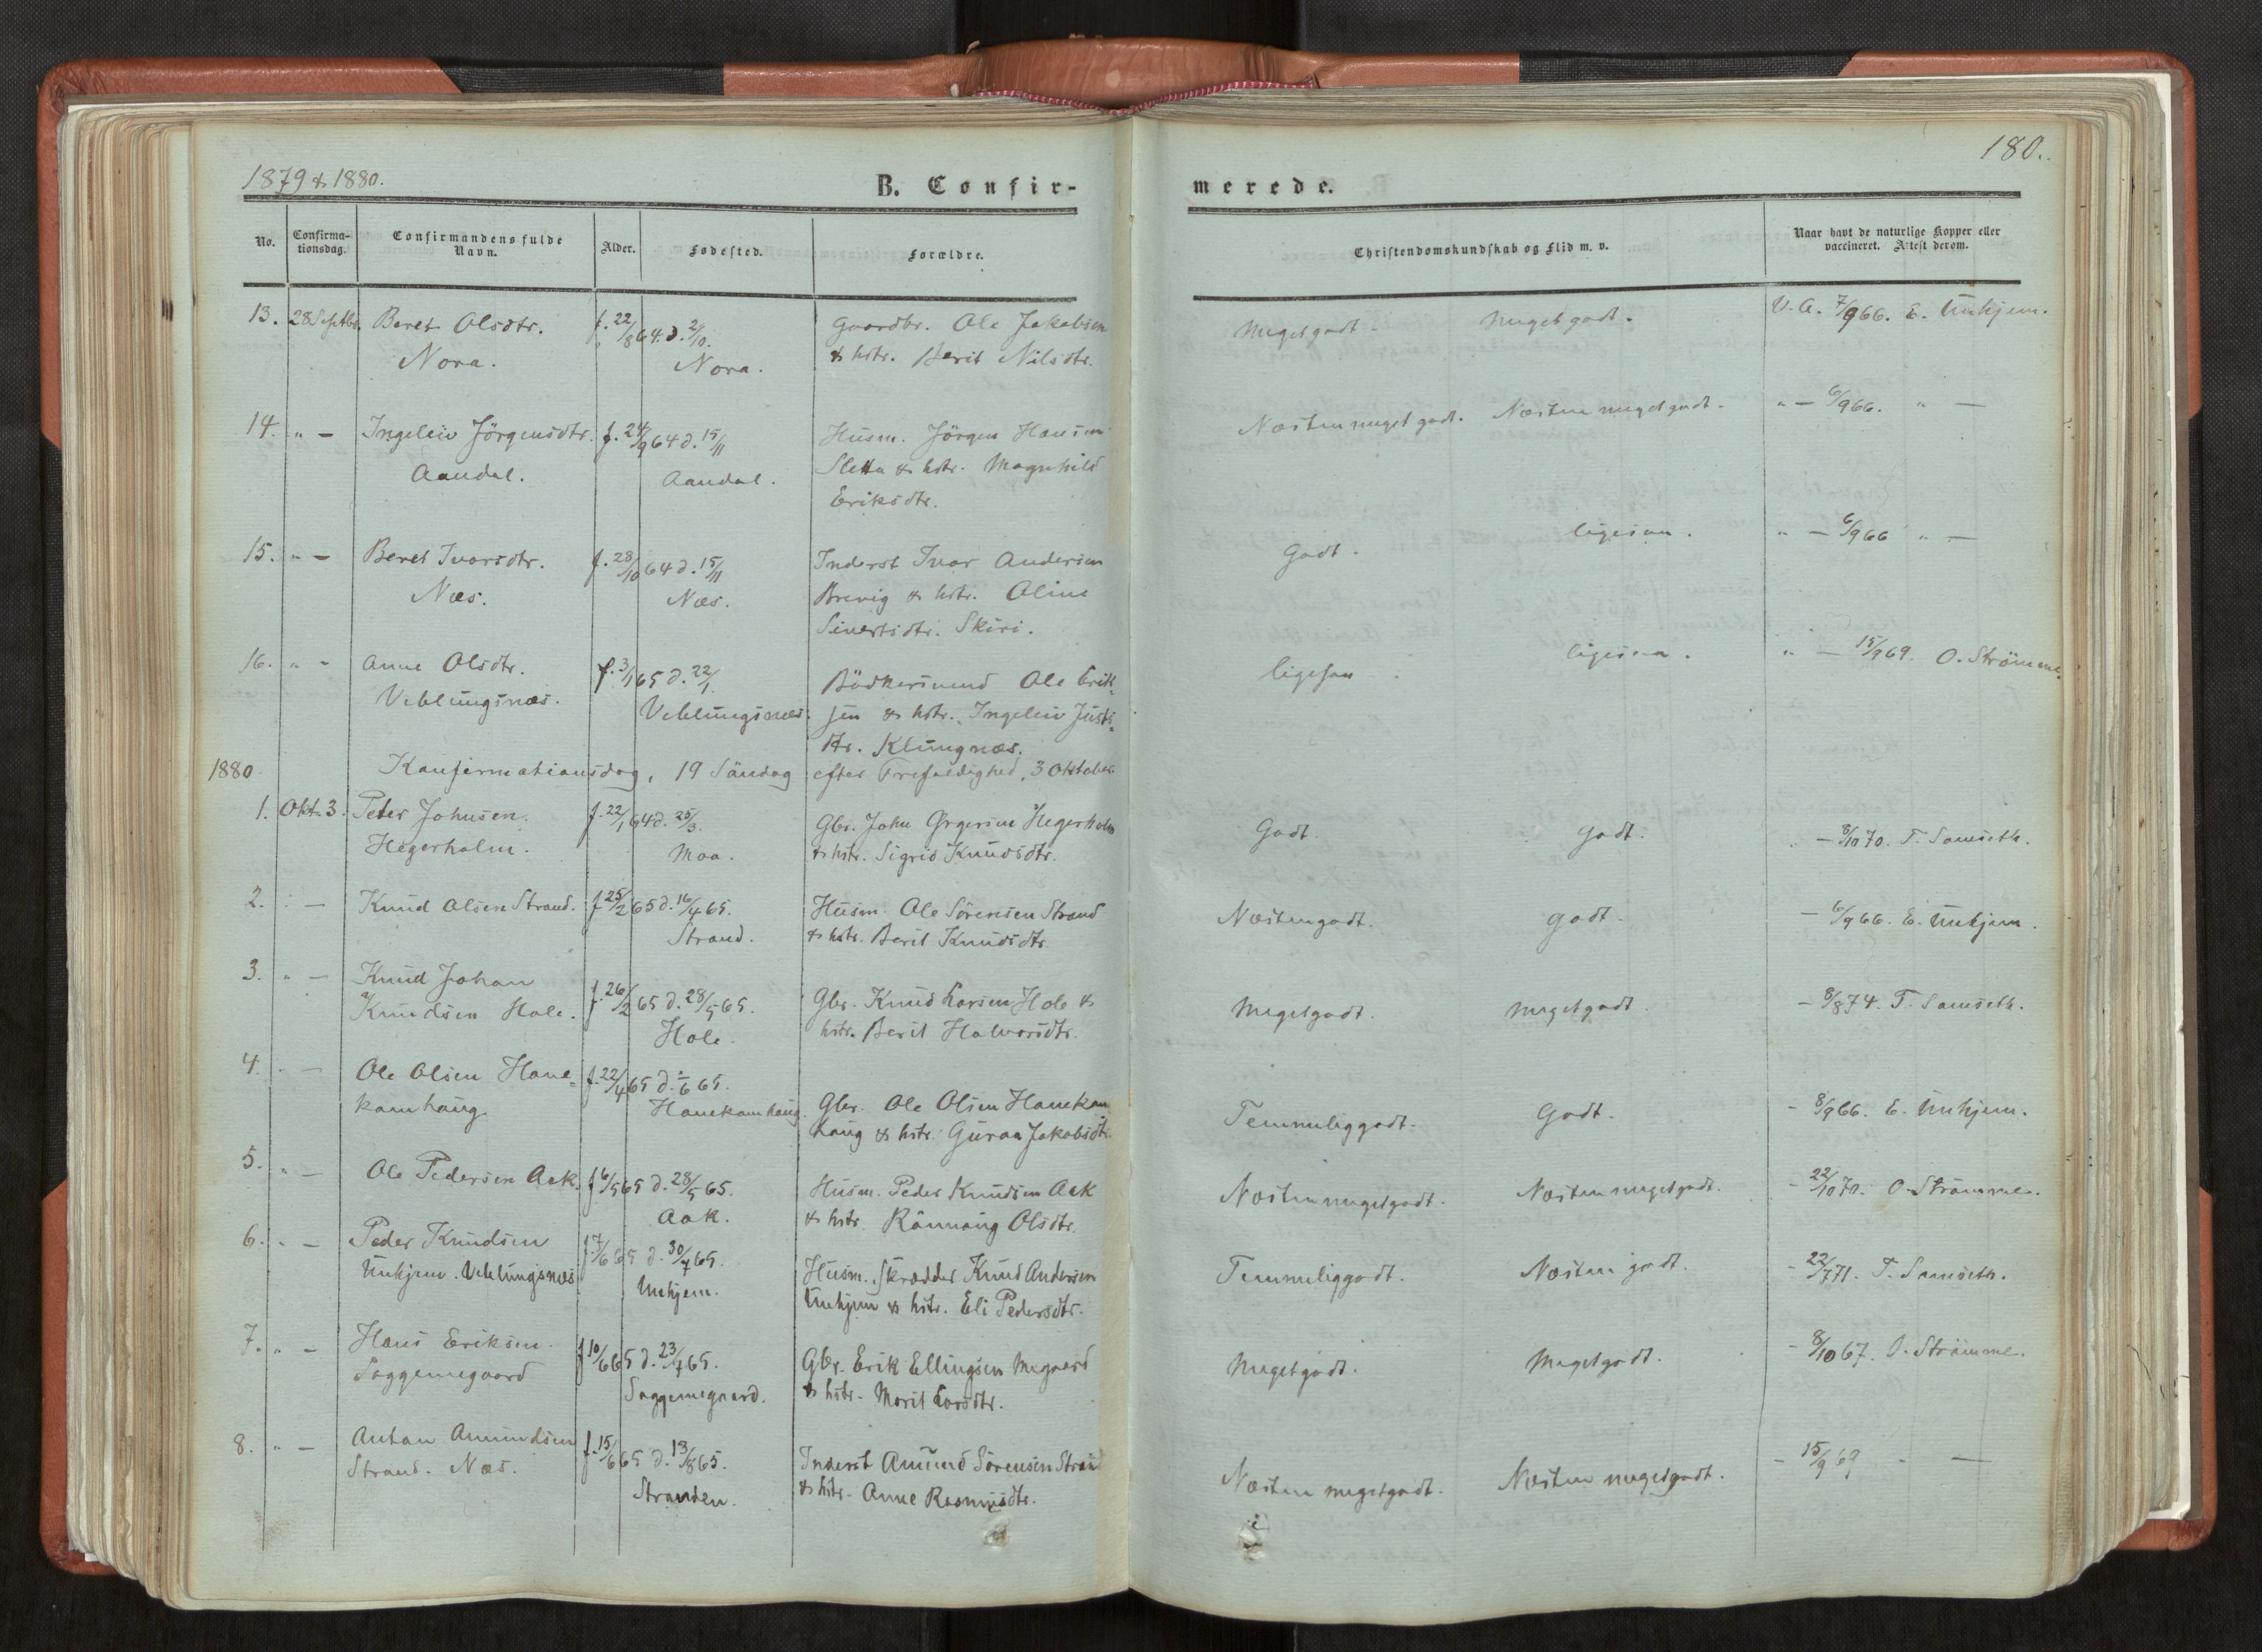 1879 & 1880.
180.
B. Confir-
merede.
No.
Confirma-
tionsdag.
Confirmandens fulde
Navn.
Alder.
Fødested.
Forældre.
Christendomskundskab og Flid m. v.
Naar havt de naturlige Kopper eller
vaccineret. Attest derom.
13. 28 Septbr. Beret Olsdtr. f. 22/8 64. d. 2/10. Gaardbr. Ole Jakobsen Megetgodt. Megetgodt. V. A. 7/9 66. E. Unhjem.
Nora. Nora. & hstr. Berit Nilsdtr.
14. " - Ingeleiv Jörgensdtr. f. 24/9 64 d. 15/11 Husm. Jörgen Hansen Næsten meget godt. Næsten megetgodt. " - 6/9 66. " -
Aandal. Aandal. Sletta & hstr. Magnhild
Eriksdtr.
15. " - Beret Ivarsdtr. f. 28/10 64 d. 15/11 Inderst Ivar Andersen Godt. ligesaa. " - 6/9 66 " -
Næs. Næs. Brevig & hstr. Oline
Sivertsdtr. Skiri.
16. " - Anne Olsdtr. f. 3/1 65 d. 22/1. Bödkersvend Ole Erik- ligesaa ligesaa. " - 15/9 69. O. Strömme.
Veblungsnæs. Veblungsnæs. sen & hstr. Ingeleiv Justs-
dtr. Klungnæs.
1880 Konfirmationsdag, 19 Söndag efter Trefoldighed, 3 Oktober
1. Okt. 3. Peter Johnsen f. 22/1 64 d. 25/3. Gbr. John Ørgersen Hegerholm Godt. Godt. " - 8/10 70. T. Samseth.
Hegerholm. Moa. & hstr. Sigrid Knudsdtr.
2. " - Knud Olsen Strand. f. 25/2 65 d. 16/4 65. Husm. Ole Sörensen Strand Næstengodt. godt. - 6/9 66. E. Unhjem.
Strand. & hstr. Berit Knudsdtr.
3. " - Knud Johan
Knudsen Hole. f. 26/2 65 d. 28/5 65. Gbr. Knud Larsen Hole & Megetgodt. megetgodt. - 8/8 74. T. Samseth.
Hole. hstr. Berit Halvorsdtr.
4. " - Ole Olsen Hane- f. 22/4 65 d. /6 65.
kamhaug Hanekamhaug. Gbr. Ole Olsen Hanekam Temmeliggodt. Godt. - 8/9 66. E. Unhjem.
haug & hstr. Guraa Jakobsdtr.
5. " - Ole Pedersen Aak. f. 6/5 65 d. 28/5 65. Husm. Peder Knudsen Aak Næstenmegetgodt. Næstenmegetgodt. - 22/10 70. O. Strömme.
Aak. & hstr. Rönnaug Olsdtr.
6. " - Peder Knudsen f. 7/6 65 d. 30/7 65. Husm. Skrædder Knud Andersen Temmeliggodt. Næsten godt. - 22/7 71. T. Samseth.
Unhjem. Veblungsnæs Unhjem. Unhjem & hstr. Eli Pedersdtr.
7. " - Hans Eriksen f. 10/6 65 d. 23/7 65. Gbr. Erik Ellingsen Megaard Megetgodt. Megetgodt. - 8/10 67. O. Strömme.
Soggemegaard Soggemegaard. & hstr. Marit Larsdtr.
8. " - Anton Amundsen f. 15/6 65 d. 13/8 65. Inderst Amund Sörensen Strand Næsten megetgodt. Næsten megetgodt. - 15/9 69 " -
Strand. Næs. Stranden. & hstr. Anne Rasmusdtr.